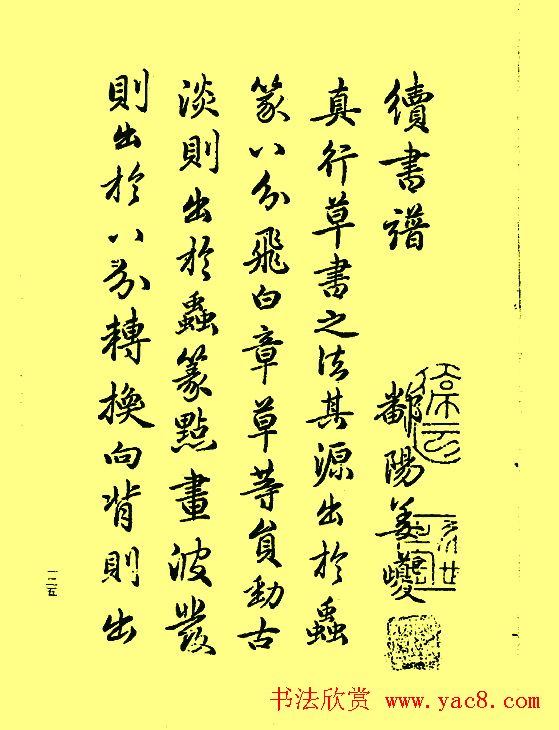 續書譜
鄱陽姜夔
真行草書之法其源出於蟲
篆八分飛白章草等負勁古
淡則出於蟲篆點畫波發
則出於八分轉換向背則出
一二五
书法欣赏 www.yac8.com